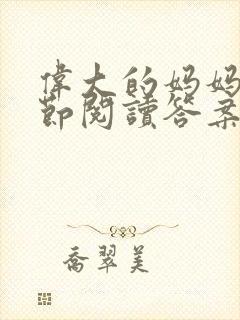 偉大的媽媽
節閱讀答案
喬翠美